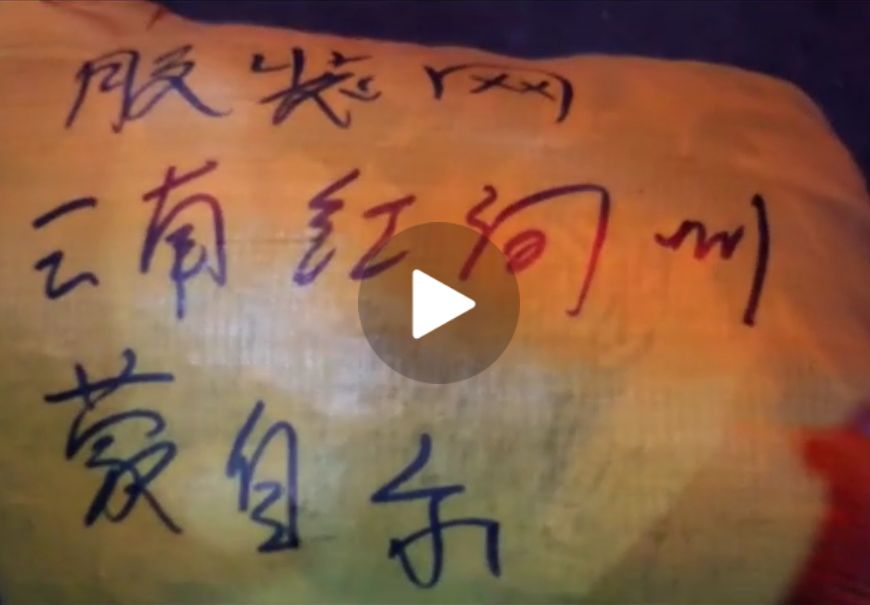 服装网
云南红河州
蒙自市